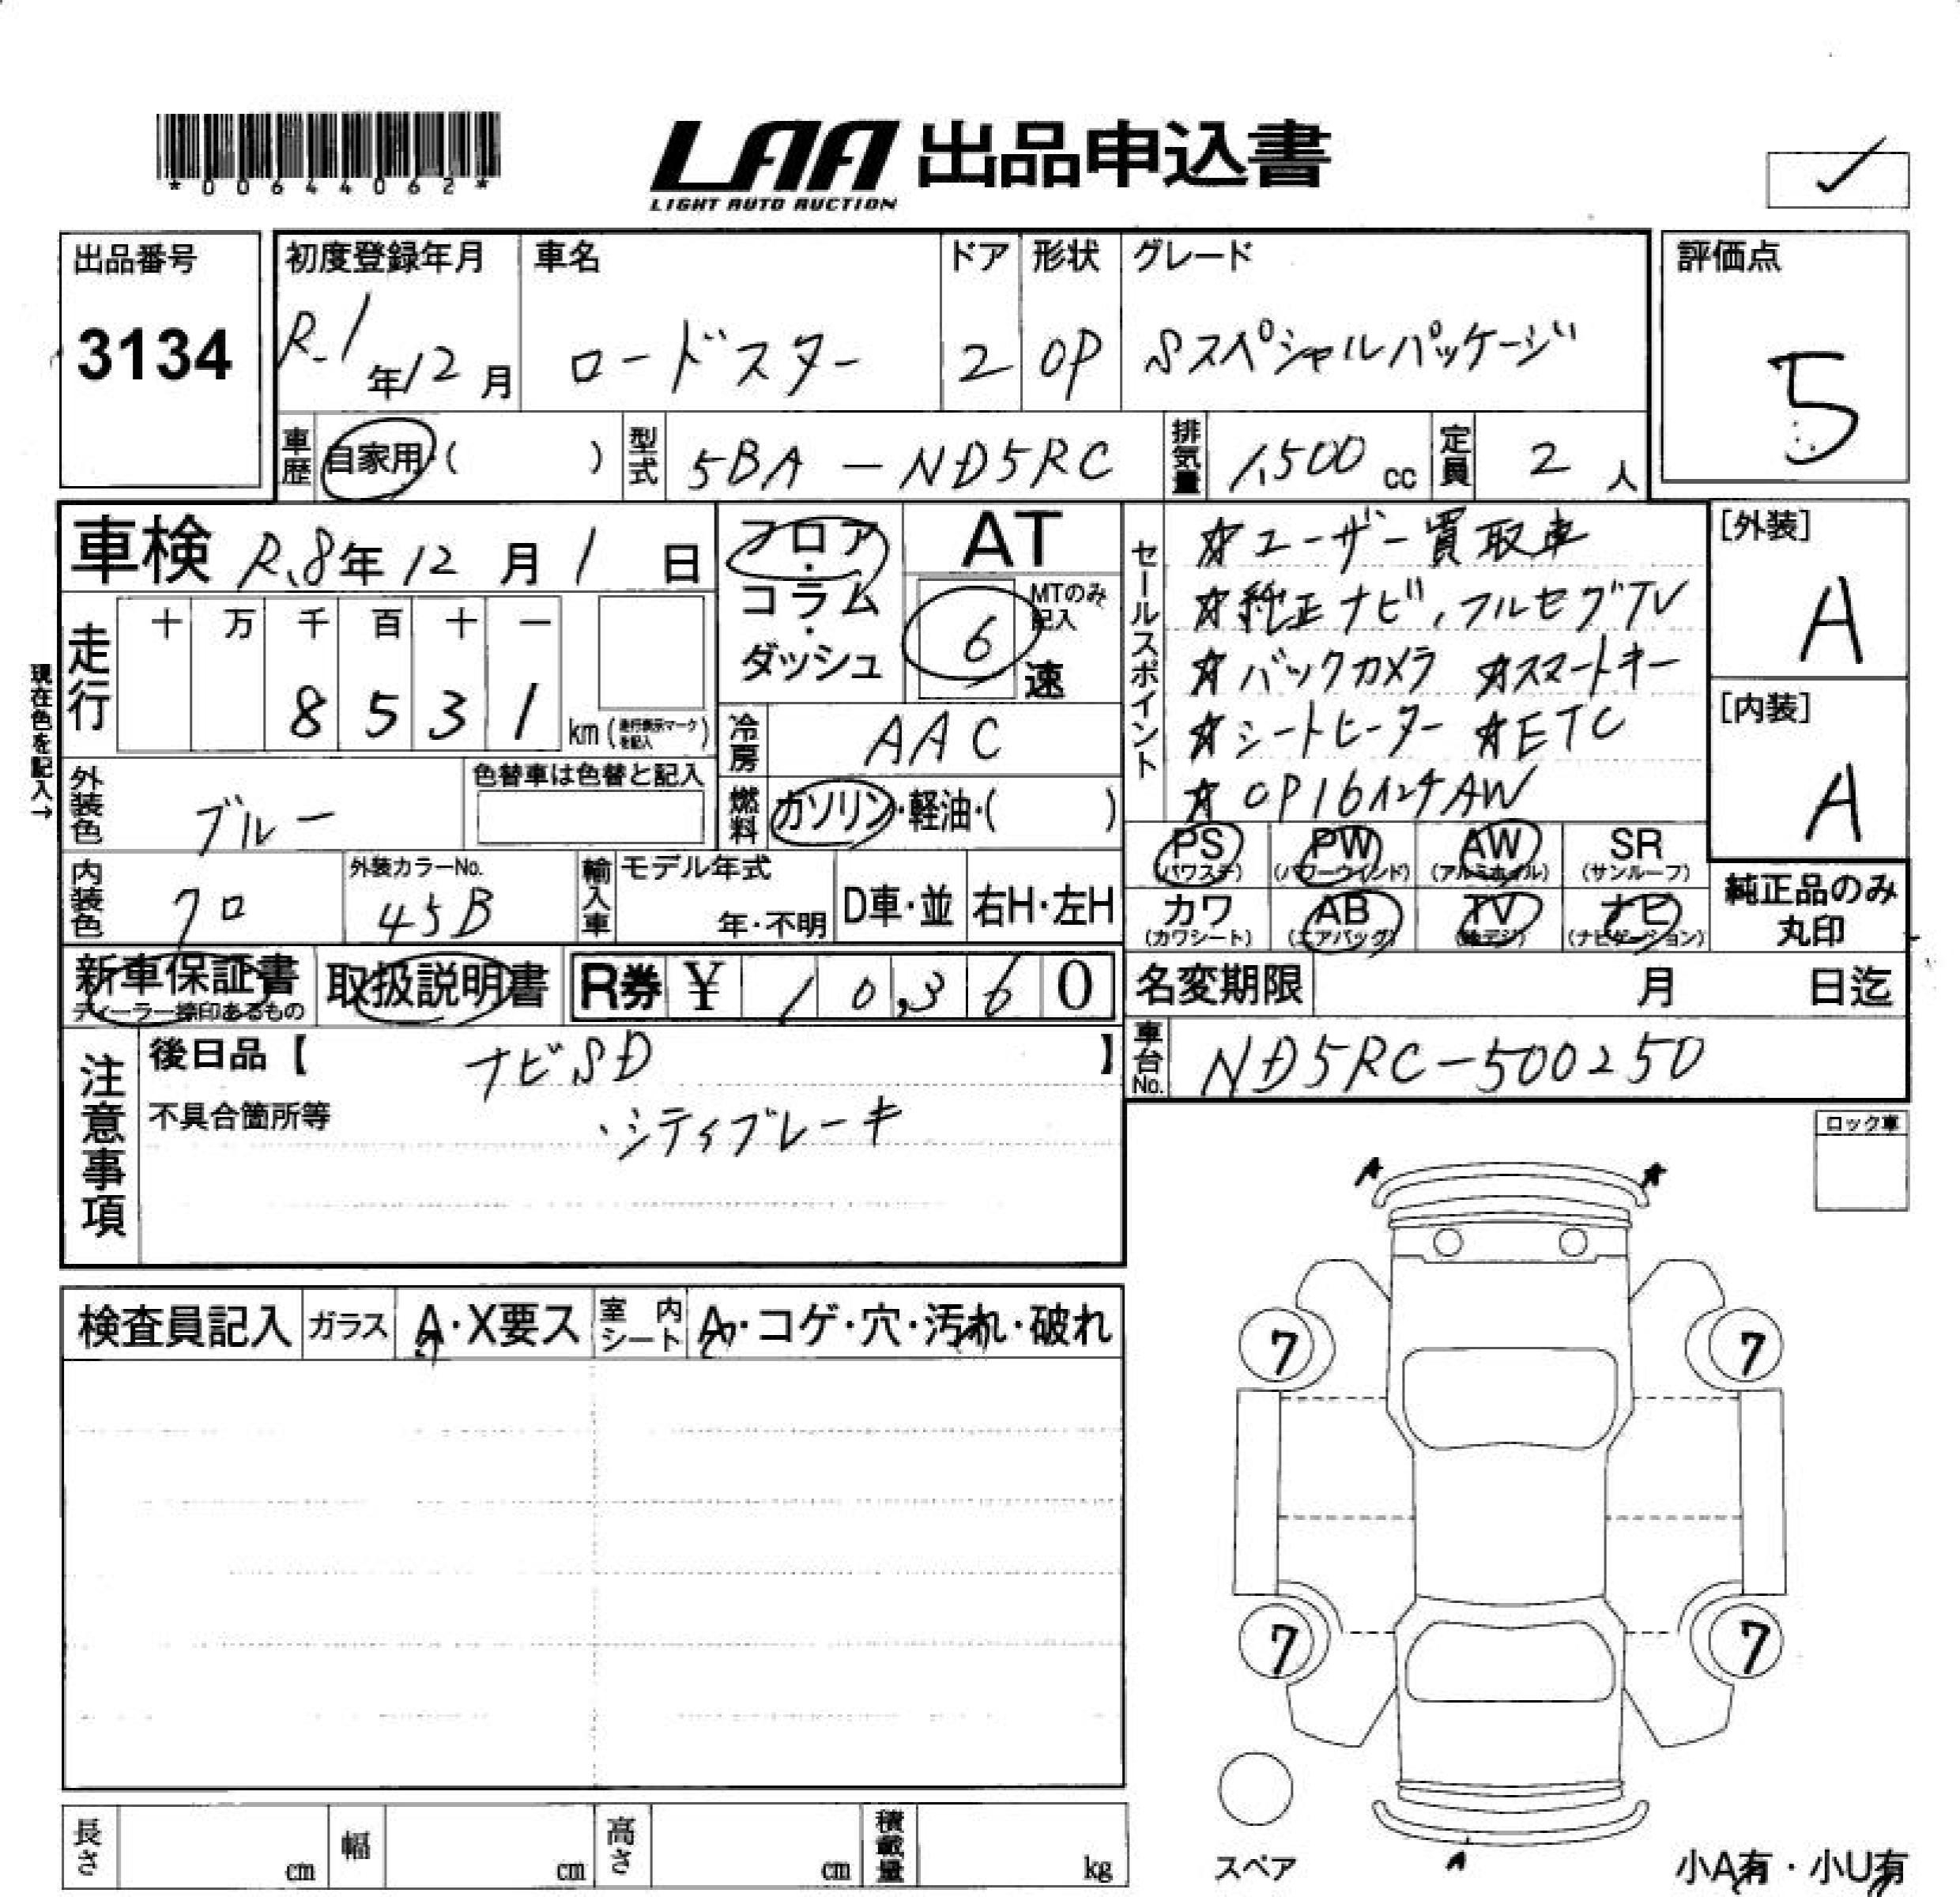 *00644062*
LAA 出品申込書
LIGHT AUTO AUCTION
出品番号
3134
初度登録年月
R.1年12月
車名
ロードスター
ドア
2
形状
OP
グレード
Sスペシャルパッケージ
評価点
5
車歴 自家用・( )
型式 5BA-ND5RC
排気量 1,500 cc
定員 2 人
車検 R.8年12月1日
フロア・コラム・ダッシュ
AT
MTのみ記入
6速
セールスポイント
☆ユーザー買取車
☆純正ナビ,フルセグTV
☆バックカメラ ☆スマートキー
☆シートヒーター ☆ETC
☆OP16インチAW
[外装]
A
[内装]
A
現在色を記入→
走行
十 万 千 百 十 一
8 5 3 1 km (走行表示マークを記入)
冷房 AAC
外装色 ブルー
色替車は色替と記入
燃料 ガソリン・軽油・( )
PS (パワステ)
PW (パワーウインド)
AW (アルミホイル)
SR (サンルーフ)
カワ (カワシート)
AB (エアバッグ)
TV (地デジ)
ナビ (ナビゲーション)
純正品のみ丸印
内装色 クロ
外装カラーNo. 45B
輸入車 モデル年式
年・不明
D車・並
右H・左H
新車保証書
ディーラー捺印あるもの
取扱説明書
R券 ¥ 10,360
名変期限 月 日迄
車台No. ND5RC-500250
注意事項
後日品【 ナビSD 】
不具合箇所等
・シティブレーキ
ロック車
検査員記入
ガラス A・X要ス
室内シート A・コゲ・穴・汚れ・破れ
A A
7 7
7 7
スペア
A
小A有・小U有
長さ cm
幅 cm
高さ cm
積載量 kg